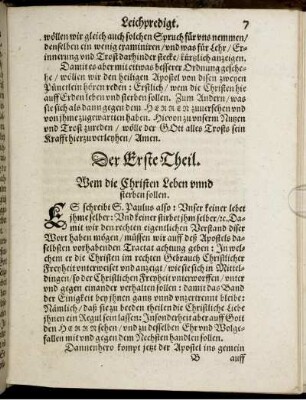 Leichpredigt. 7
wöllen wir gleich auch solchen Spruch für vns nemmen/
denselben ein wenig examiniren/ vnd was für Lehr/ Er-
innerung vnd Trost darhinder stecke/ kürtzlich anzeigen.
Damit es aber mit etwas besserer Ordnung gesche-
he/ wöllen wir den heiligen Apostel von disen zweyen
Püncteln hören reden: Erstlich/ wem die Christen hie
auff Erden leben vnd sterben sollen. Zum Andern/ was
sie sich als dann gegen dem HERREN zuversehen vnd
von jhme zugewarten haben. Hievon zu vnserm Nutzen
vnd Trost zureden/ wölle der GOtt alles Trosts sein
Krafft hierzu verleyhen/ Amen.
Der Erste Theil.
Wem die Christen Leben vnnd
sterben sollen.
ES schreibt S. Paulus also: Vnser keiner lebet
jhme selber: Vnd keiner stirbet jhm selber/ ꝛc. Da-
mit wir den rechten eigentlichen Verstand diser
Wort haben mögen/ müssen wir auff deß Apostels da-
selbsten vorhabenden Tractat achtung geben: In wel-
chem er die Christen im rechten Gebrauch Christlicher
Freyheit vnterweiset vnd anzeigt/ wie sie sich in Mittel-
dingen/ so der Christlichen Freyheit vnterworffen/ vnter
vnd gegen einander verhalten sollen: damit das Band
der Einigkeit bey jhnen gantz vnnd vnzertrennt bleibe:
Nämlich/ daß sie zu beeden theilen die Christliche Liebe
jhnen ein Regul sein lassen: Insonderheit aber auff Gott
den HERREN sehen/ vnd zu desselben Ehr vnd Wolge-
fallen mit vnd gegen dem Nechsten handlen sollen.
Dannenhero kompt jetzt der Apostel ins gemein
B auff